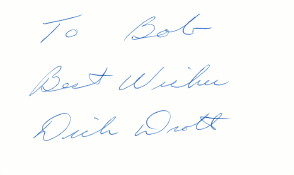 To Bob
Best Wishes
Dick Drott